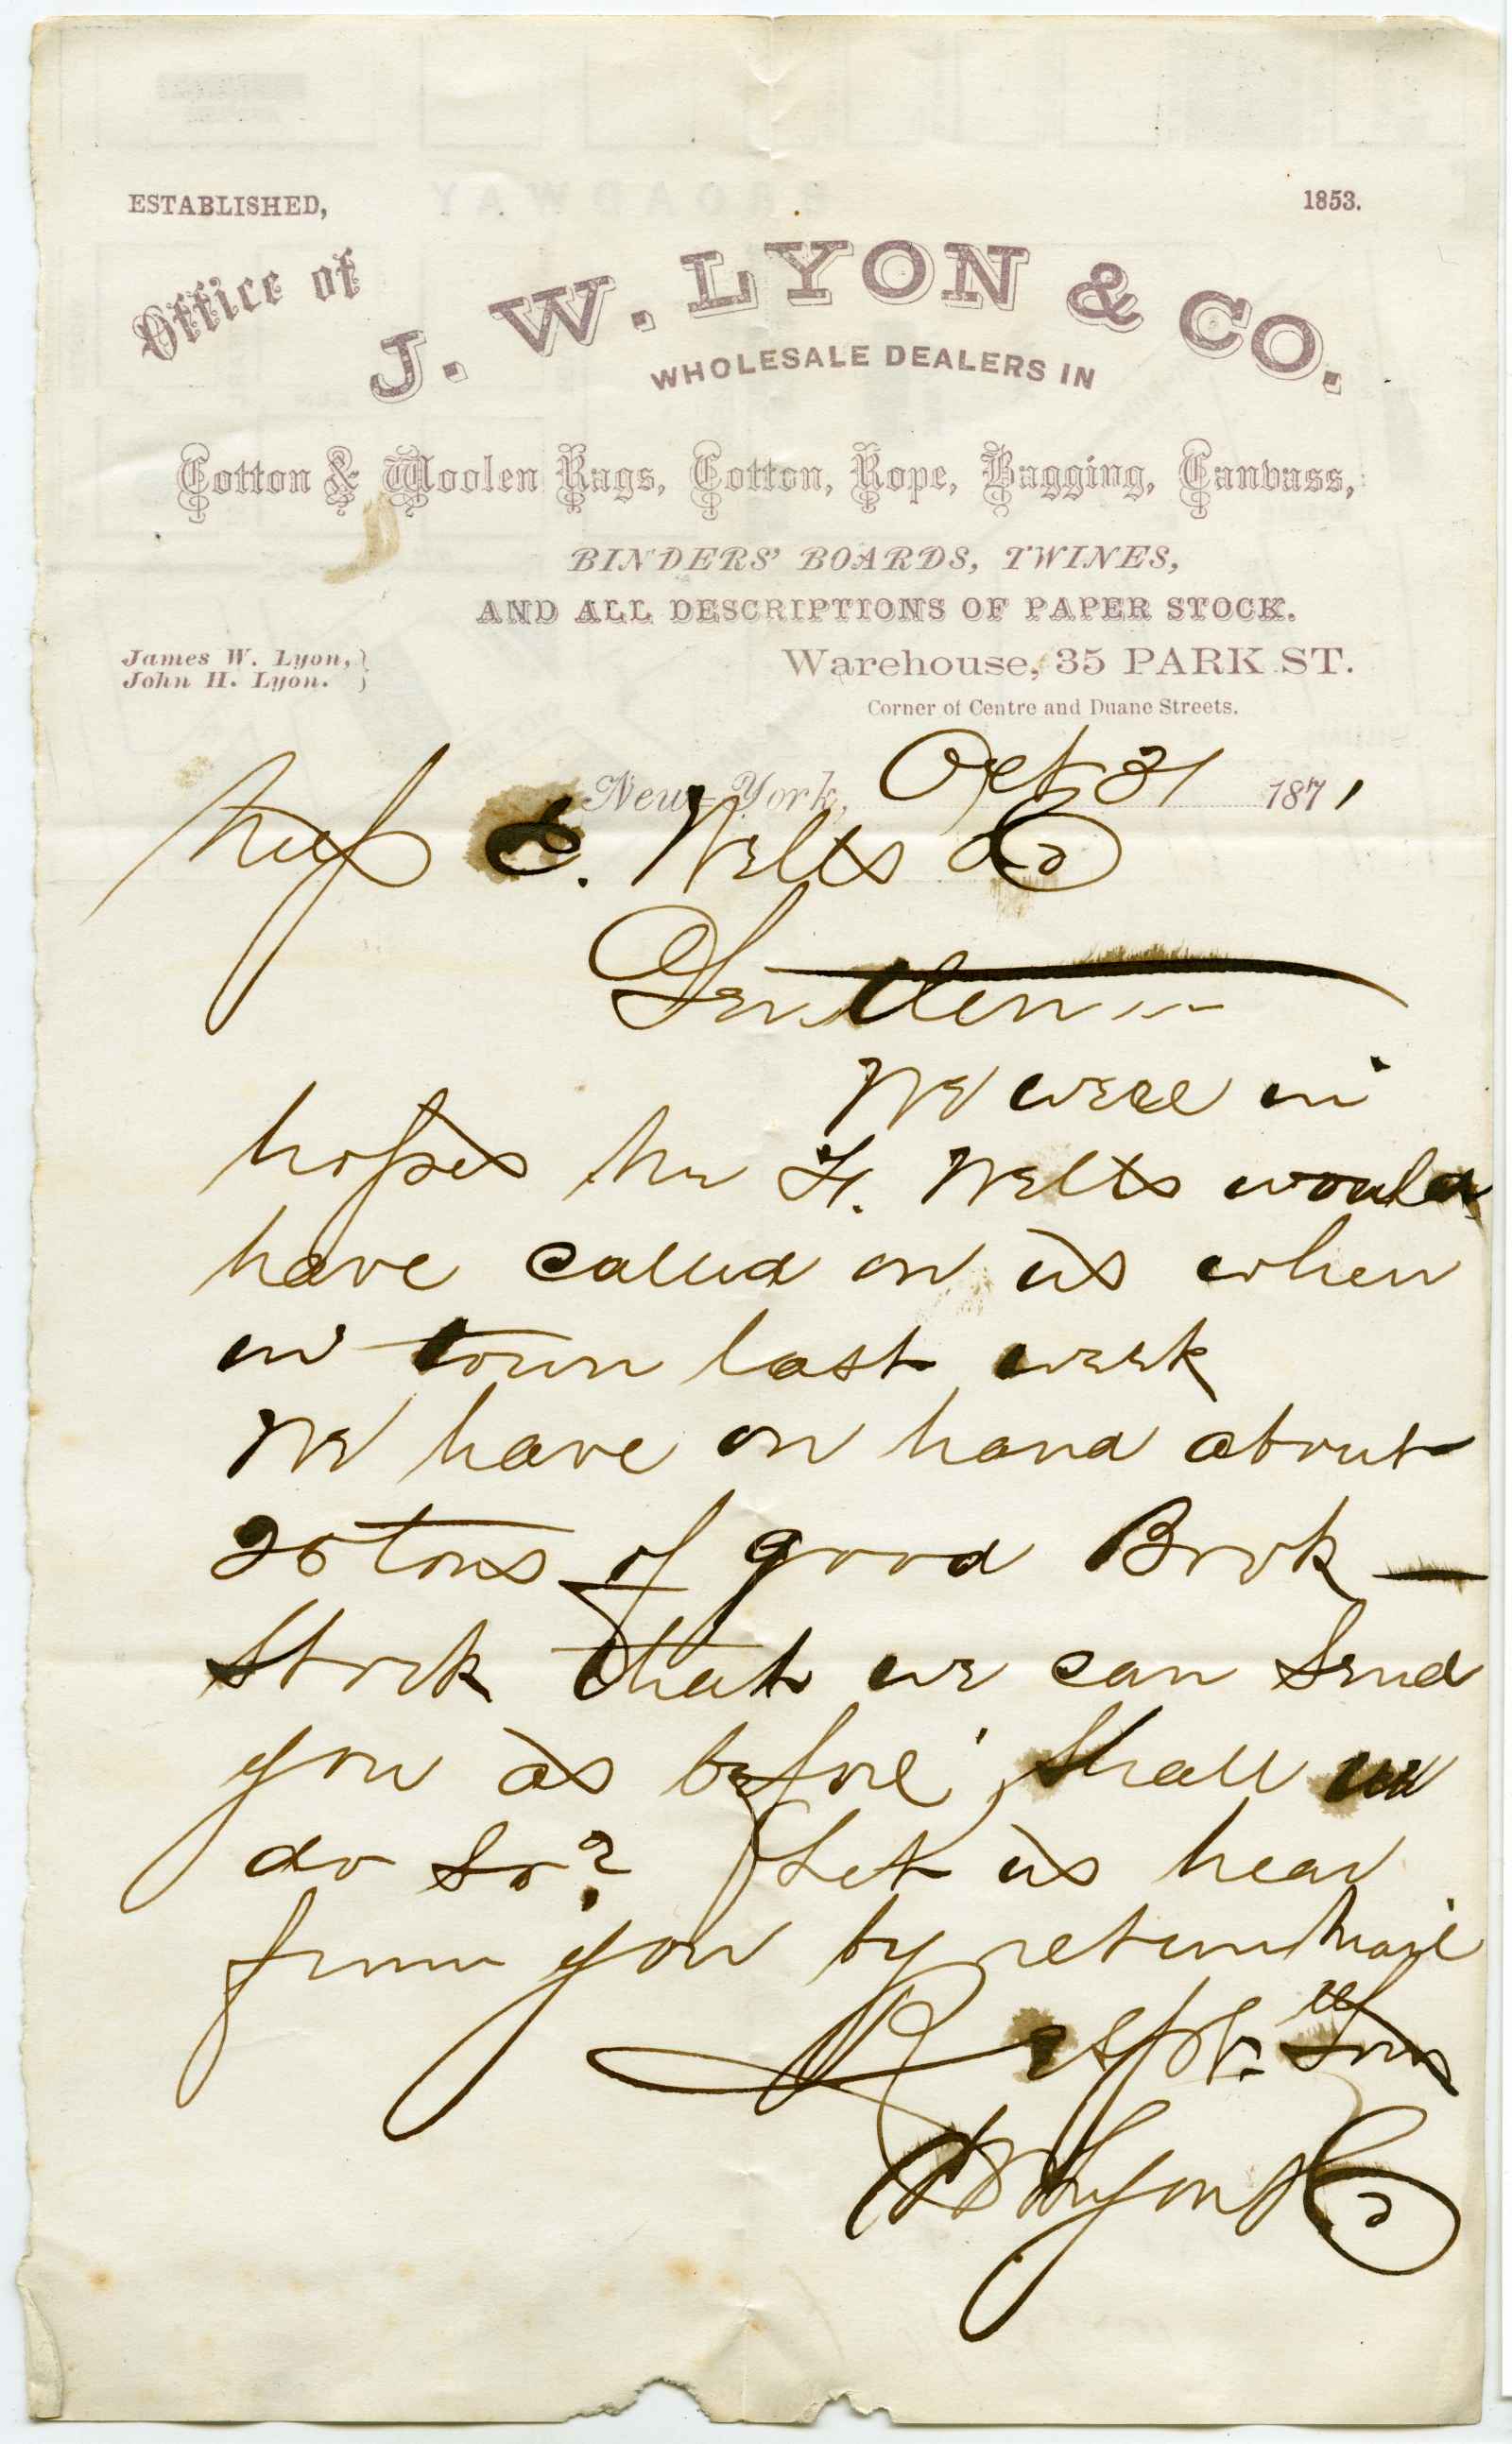 ESTABLISHED, 1853.
Office of
J. W. LYON & CO.
WHOLESALE DEALERS IN
Cotton & Woolen Rags, Cotton, Rope, Bagging, Canvass,
BINDERS' BOARDS, TWINES,
AND ALL DESCRIPTIONS OF PAPER STOCK.
James W. Lyon,
John H. Lyon.
Warehouse, 35 PARK ST.
Corner of Centre and Duane Streets.
New-York, Oct 21 1871
Mess C. Wells & Co
Gentlemen
We were in
hopes Mr F. Wells would
have called on us when
in town last week
We have on hand about
20 tons of good Book
Stock that we can send
you as before, shall we
do so? Let us hear
from you by return mail
Respt Yours
J W Lyon & Co